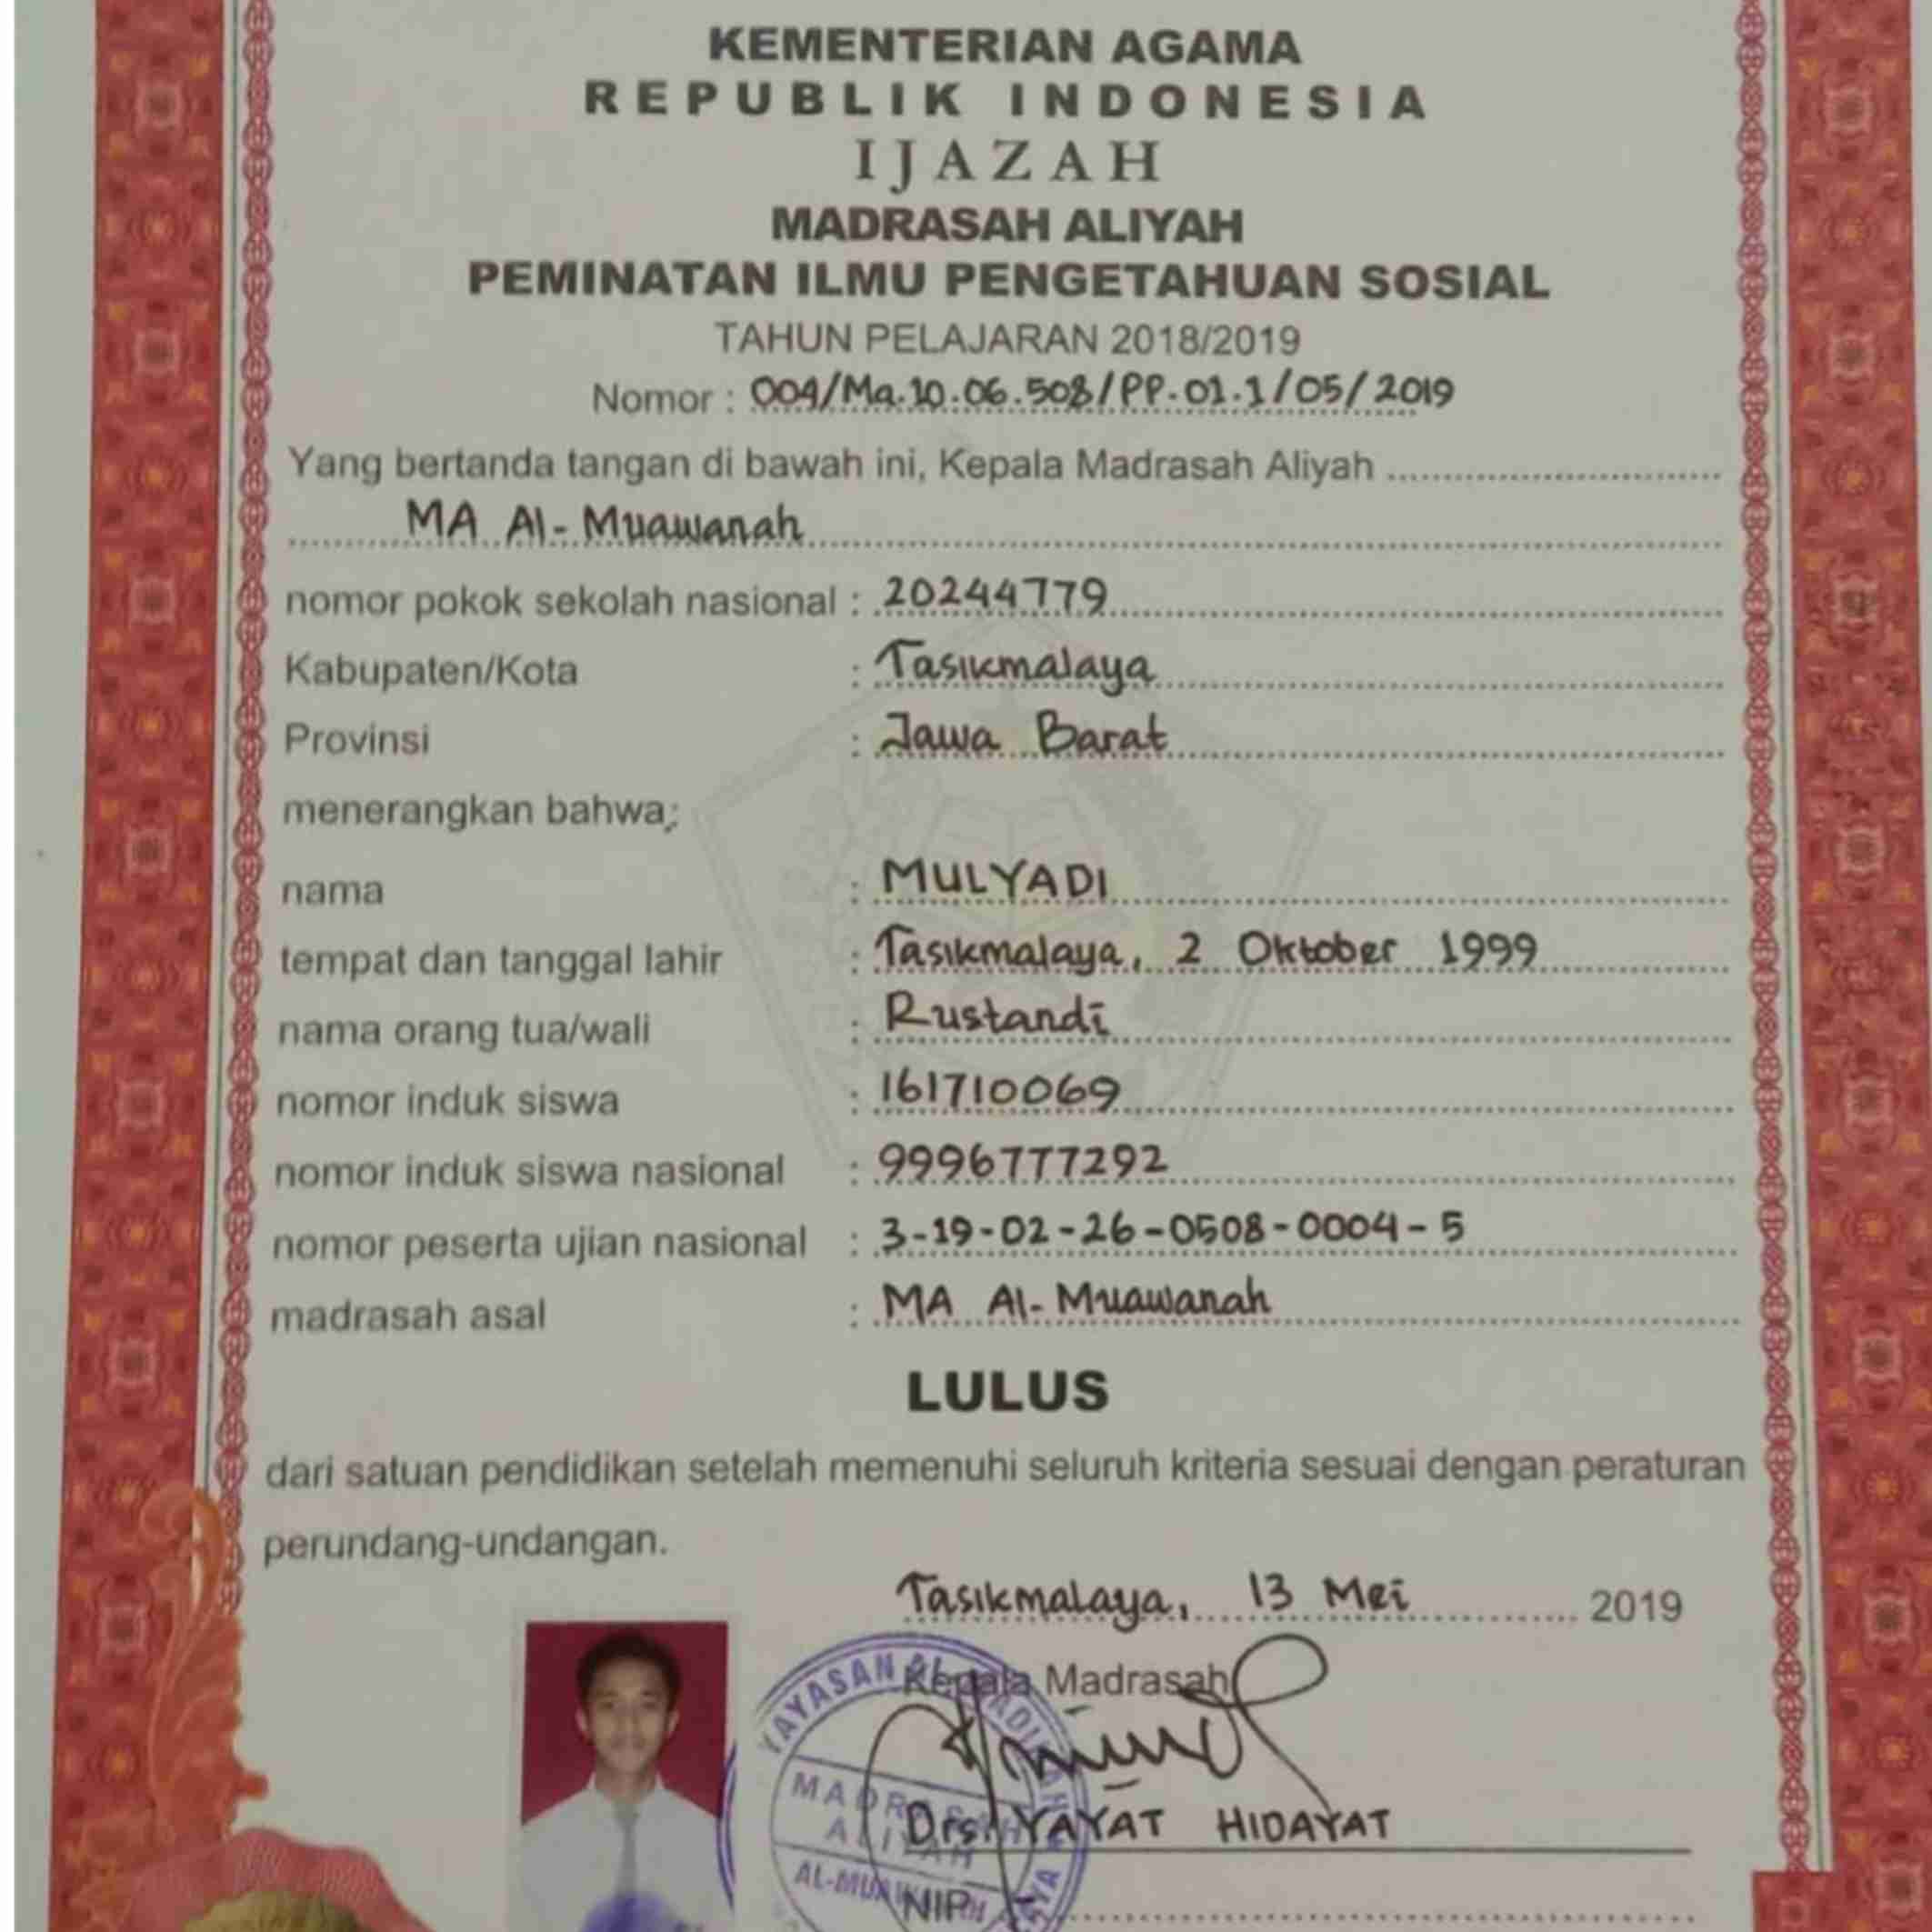 KEMENTERIAN AGAMA
REPUBLIK INDONESIA
IJAZAH
MADRASAH ALIYAH
PEMINATAN ILMU PENGETAHUAN SOSIAL
TAHUN PELAJARAN 2018/2019
Nomor : 004/Ma.10.06.508/PP.01.1/05/2019
Yang bertanda tangan di bawah ini, Kepala Madrasah Aliyah
MA Al-Muawanah
nomor pokok sekolah nasional : 20244779
Kabupaten/Kota : Tasikmalaya
Provinsi : Jawa Barat
menerangkan bahwa;
nama : MULYADI
tempat dan tanggal lahir : Tasikmalaya, 2 Oktober 1999
nama orang tua/wali : Rustandi
nomor induk siswa : 161710069
nomor induk siswa nasional : 9996777292
nomor peserta ujian nasional : 3-19-02-26-0508-0004-5
madrasah asal : MA Al-Muawanah
LULUS
dari satuan pendidikan setelah memenuhi seluruh kriteria sesuai dengan peraturan
perundang-undangan.
Tasikmalaya, 13 Mei 2019
Kepala Madrasah
YAYASAN
MADRASAH
ALIYAH
AL-MUAWANAH
Drs. YAYAT HIDAYAT
NIP. -